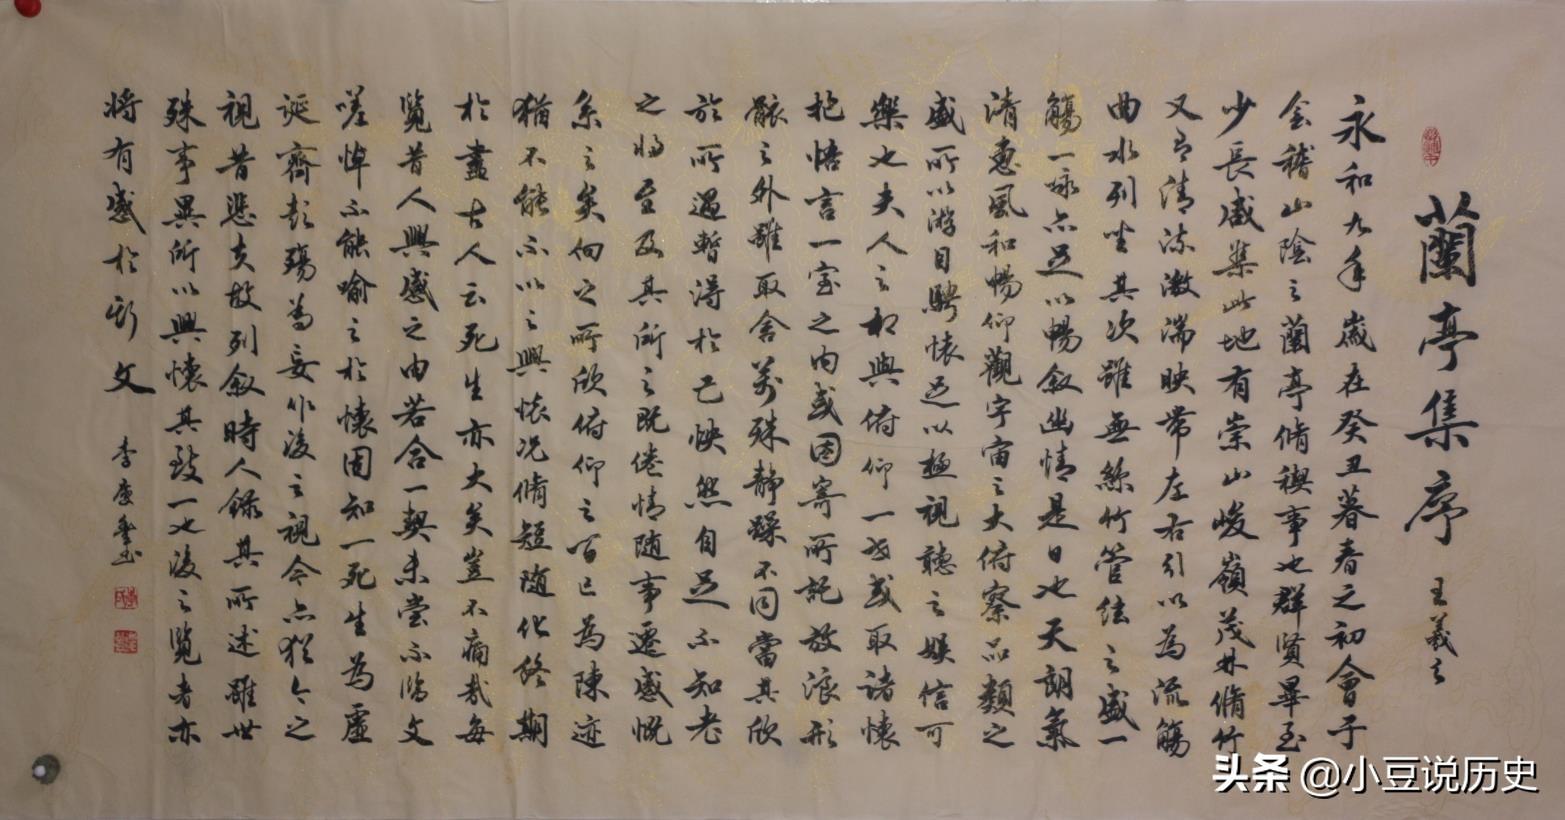 蘭亭集序 王羲之
永和九年歲在癸丑暮春之初會于
会稽山陰之蘭亭脩禊事也群賢畢至
少長咸集此地有崇山峻嶺茂林脩竹
又有清流激湍映帶左右引以為流觴
曲水列坐其次雖無絲竹管弦之盛一
觴一詠亦足以暢叙幽情是日也天朗氣
清惠風和暢仰觀宇宙之大俯察品類之
盛所以游目騁懷足以極視聽之娱信可
樂也夫人之相與俯仰一世或取諸懷
抱悟言一室之内或因寄所託放浪形
骸之外雖取舍萬殊静躁不同當其欣
於所遇暫得於己怏然自足不知老
之將至及其所之既倦情随事遷感慨
系之矣向之所欣俯仰之间已為陳迹
猶不能不以之興懷况脩短随化終期
於盡古人云死生亦大矣豈不痛哉每
覽昔人興感之由若合一契未嘗不臨文
嗟悼不能喻之於懷固知一死生為虛
誕齊彭殤為妄作後之視今亦猶今之
視昔悲夫故列叙時人録其所述雖世
殊事異所以興懷其致一也後之覽者亦
將有感於斯文
李
头条 @小豆说历史